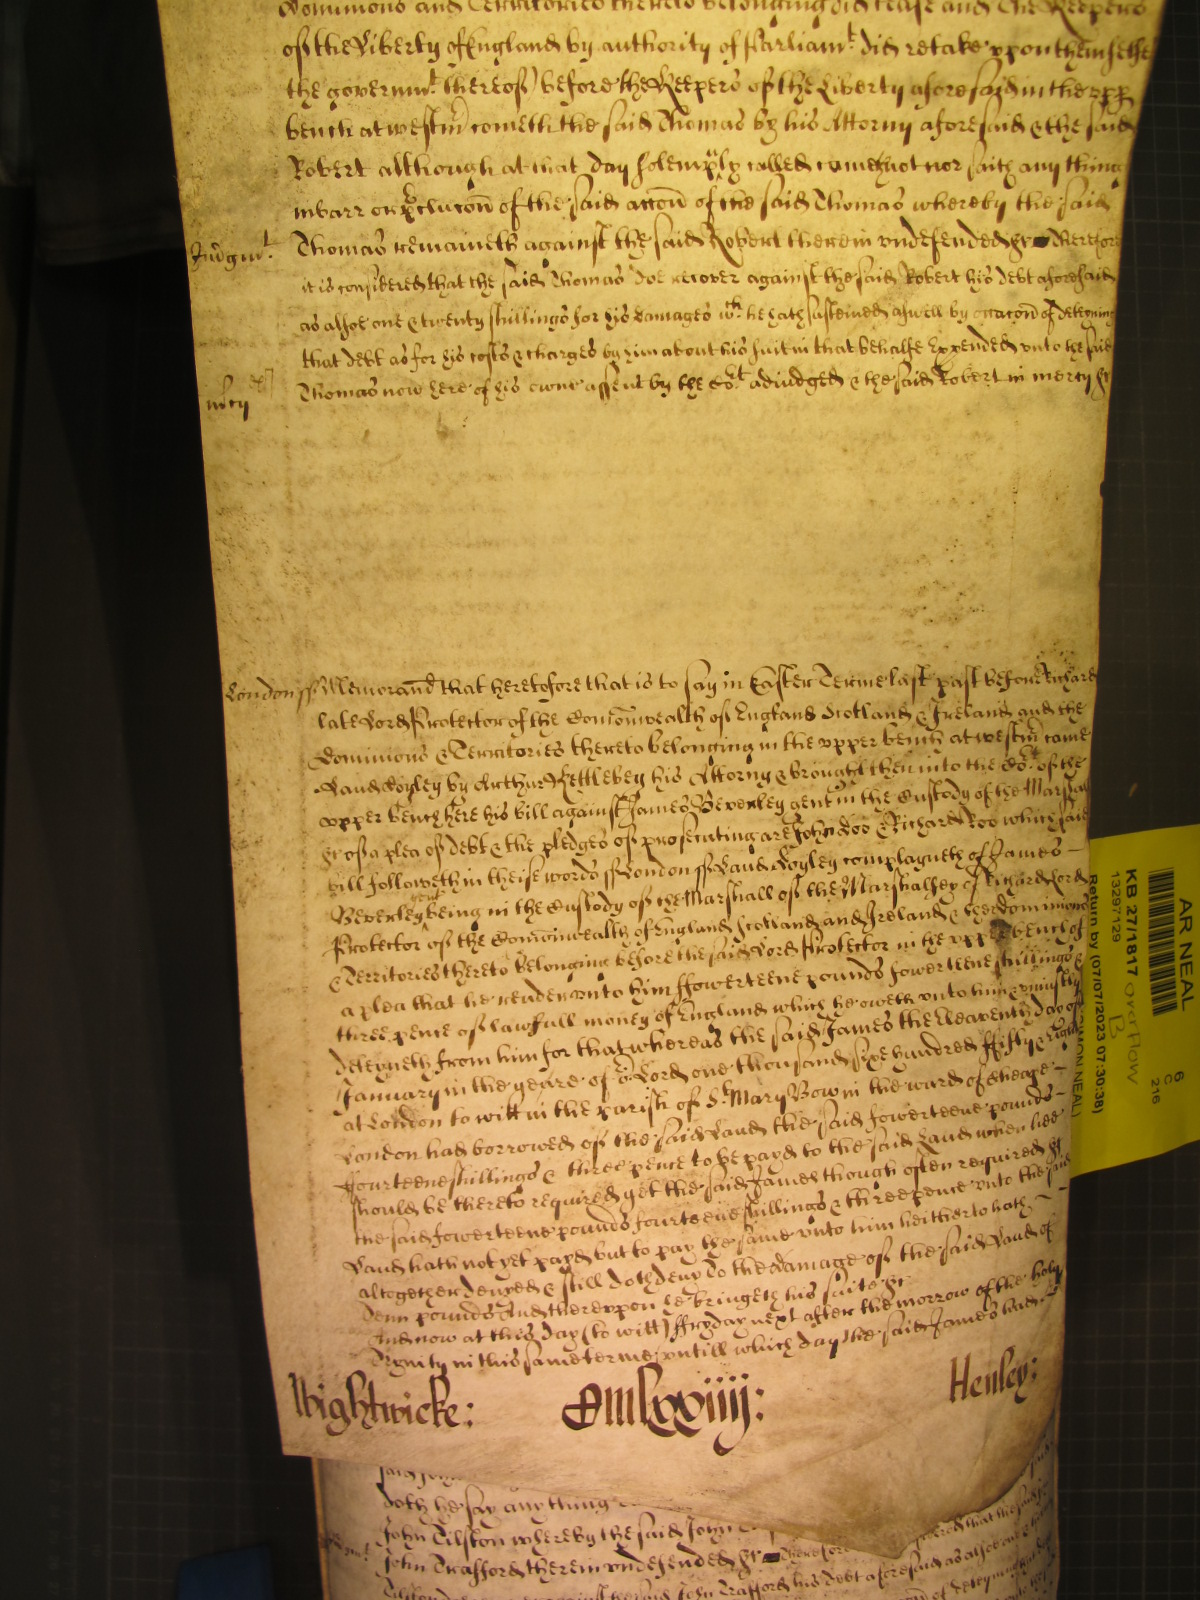 Dominions and Territories thereto belonging did cease and the Keepers
of the Liberty of England by authority of Parliamt. did retake upon themselves
the governmt. thereof) before the Keepers of the Liberty aforesaid in the upp
bench at westmr cometh the said Thomas by his Attorny aforesaid & the said
Robert although at that day solempnly called cometh not nor saith any thing
in barr or preclucon of the said accon of the said Thomas whereby the said
Judgmt. Thomas remaineth against the said Robert therein undefended &c Therefore
it is considered that the said Thomas doe recover against the said Robert his debt aforesaid
as alsoe one & twenty shillings for his damages wch. he hath susteined aswell by occacon of deteyning
that debt as for his costs & charges by him about his suit in that behalfe expended unto the said
Thomas now here of his owne assent by the Cort. adjudged & the said Robert in mercy &c
mcy
London ss Memorand that heretofore that is to say in Easter Terme last past before Richard
late Lord Protector of the Comonwealth of England Scotland & Ireland and the
Dominions & Territories thereto belonging in the upper bench at westmr came
Laud Doyley by Arthur Nettlebey his Attorny & brought then into the Cort. of the
upper bench here his bill against James Beverley gent in the Custody of the Marshal
&c of a plea of debt & the pledges of prosecuting are John doo & Richard Roo which said
bill followeth in theise words ss London ss Laud Doyley complayneth of James
Beverley gent being in the Custody of the Marshall of the Marshalsey of Richard Lord
Protector of the Comonwealth of England Scotland and Ireland & the dominions
& Territories thereto belonging before the said Lord Protector in the upper bench of
a plea that he render unto him ffowerteene pounds fowerteene shillings &
three pence of lawfull money of England which he oweth unto him & uniustly
deteyneth from him for that whereas the said James the eleaventh day of
January in the yeare of or. Lord one thousand sixe hundred ffifty & eight
at London to witt in the parish of St. Mary Bow in the ward of Cheape
London had borrowed of the said Laud the said fowerteene pounds
ffourteene shillings & three pence to be payd to the said Laud when hee
should be thereto required yet the said James though often required &c
the said fowerteene pounds fourteene shillings & three pence unto the said
Laud hath not yet payd but to pay the same unto him hitherto hath
altogether denyed & still doth deny To the damage of the said Laud of
Tenn pounds And thereupon he bringeth his suite &c
And now at this day (to witt) ffryday next after the morrow of the holy
Trynity in this same terme untill which day the said James had
Wightwicke: Mlxxiiij: Henley:
doth he say any thing
John Tilston whereby the said John
John Trafford therein undefended &c Therefore
AR NEAL
KB 27/1817 overflow
13297129
B
Return by (07/07/2023 07:30:38)
6
C
216